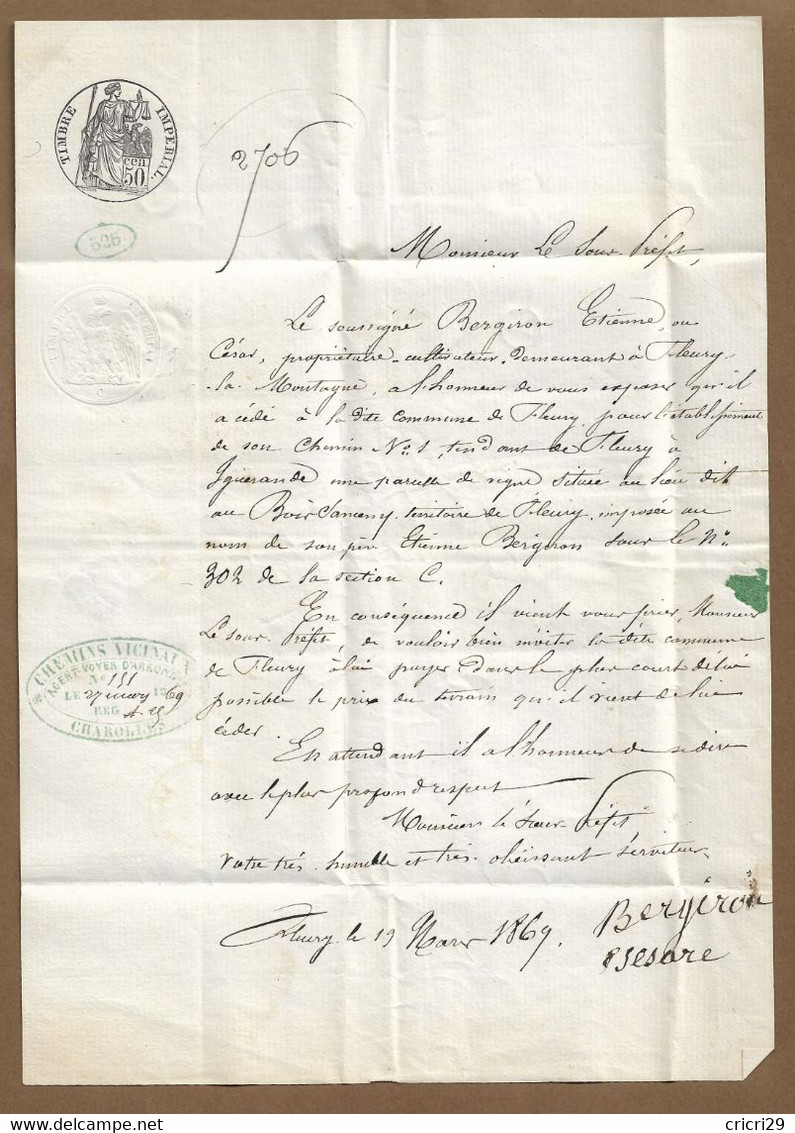 TIMBRE IMPERIAL
50 cen
2706
525.
Monsieur Le Sous-Préfet,
Le soussigné Bergiron Etienne, ou
César, propriétaire-cultivateur, demeurant à Fleury-
-la-Montagne, a l'honneur de vous exposer qu'il
a cédé à la dite commune de Fleury, pour l'établissement
de son chemin No 1, tendant de Fleury à
Iguerande une parcelle de vigne située au lieu dit
au Bois Sanceny, territoire de Fleury, imposée au
nom de son père Etienne Bergiron sous le No
302 de la section C.
En conséquence il vient vous prier, Monsieur
Le Sous-Préfet, de vouloir bien inviter la dite commune
de Fleury à lui payer dans le plus court délai
possible le prix du terrain qu'il vient de lui
céder.
En attendant il a l'honneur de se dire
avec le plus profond respect
Monsieur le Sous-Préfet
Votre très-humble et très-obéissant serviteur,
Fleury le 19 Mars 1869.
Bergiron
CHEMINS VICINAUX
AGENT VOYER D'ARROND
No 151
LE 27 mars 1869
REG
CHAROLLES
cricri29